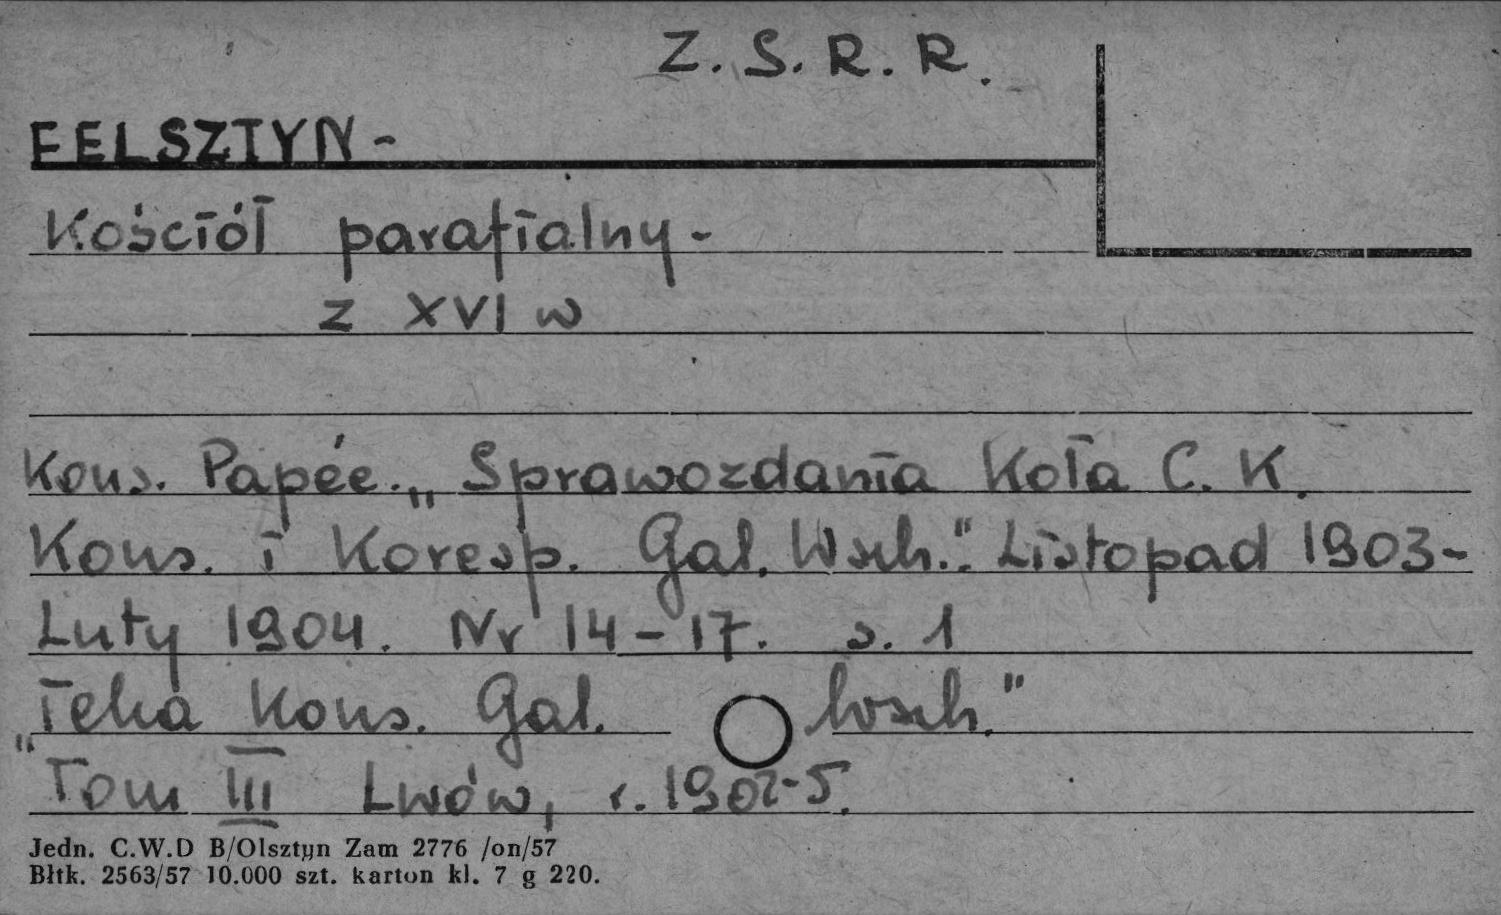 Z. S. R. R.
FELSZTYN -
Kościół parafialny -
z XVI w
Kons. Papée. „Sprawozdania Koła C. K.
Kons. i Koresp. Gal. Wsch.". Listopad 1903-
Luty 1904. Nr 14-17. s. 1
„Teka Kons. Gal. Wsch."
Tom III Lwów, r. 1902-5.
Jedn. C.W.D B/Olsztyn Zam 2776 /on/57
Błtk. 2563/57 10.000 szt. karton kl. 7 g 220.